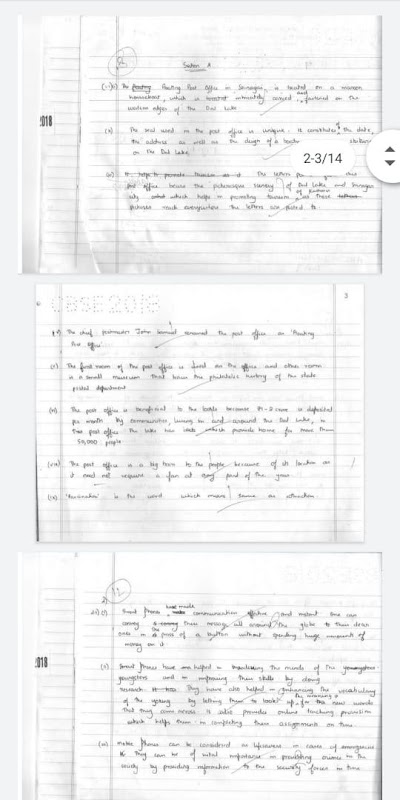 Section A
(i) The Floating Post Office in Srinagar, is located on a maroon
houseboat, which is intricately carved and fastened on the
western edges of the Dal Lake
(ii) The seal used in the post office is unique. It constitutes of the date,
the address as well as the design of a boatman
on the Dal Lake.
2-3/14
2018
(iii) The letters
post office bears the picturesque scenery of Dal Lake and Srinagar
city which helps in promoting tourism, as these
pictures reach everywhere the letters are posted to.
CBSE 2018
3
(iv) The chief postmaster John Samuel renamed the post office as 'Floating
Post Office'.
(v) The first room of the post office is used as the office and other room
is a small museum that has the philatelic history of the state
postal department
(vi) The post office is beneficial to the locals because ₹1-2 crore is deposited
per month by communities living in and around the Dal Lake, in
post office. The lake has islets which provides home for more than
50,000 people.
(viii) The post office is a big boon to the people because of its location as
it need not require a fan at any part of the year.
(ix) 'Fascination' is the word which means same as attraction.
2)
(i) Smart phones have made communication effective and instant. One can
convey their message all around the globe to their dear
ones in the press of a button without spending huge amounts of
money on it
(ii) Smart phones have helped in broadening the minds of the
youngsters and in improving their skills by doing
research. They have also helped in enhancing the vocabulary
of the young by letting them to look up for the meaning new words
that they come across. It also provides online teaching provision
which helps them in completing their assignments on time.
2018
(iii) Mobile phones can be considered as lifesavers in cases of emergencies
They can be of vital importance in preventing crimes in the
society by providing information to the security forces in time